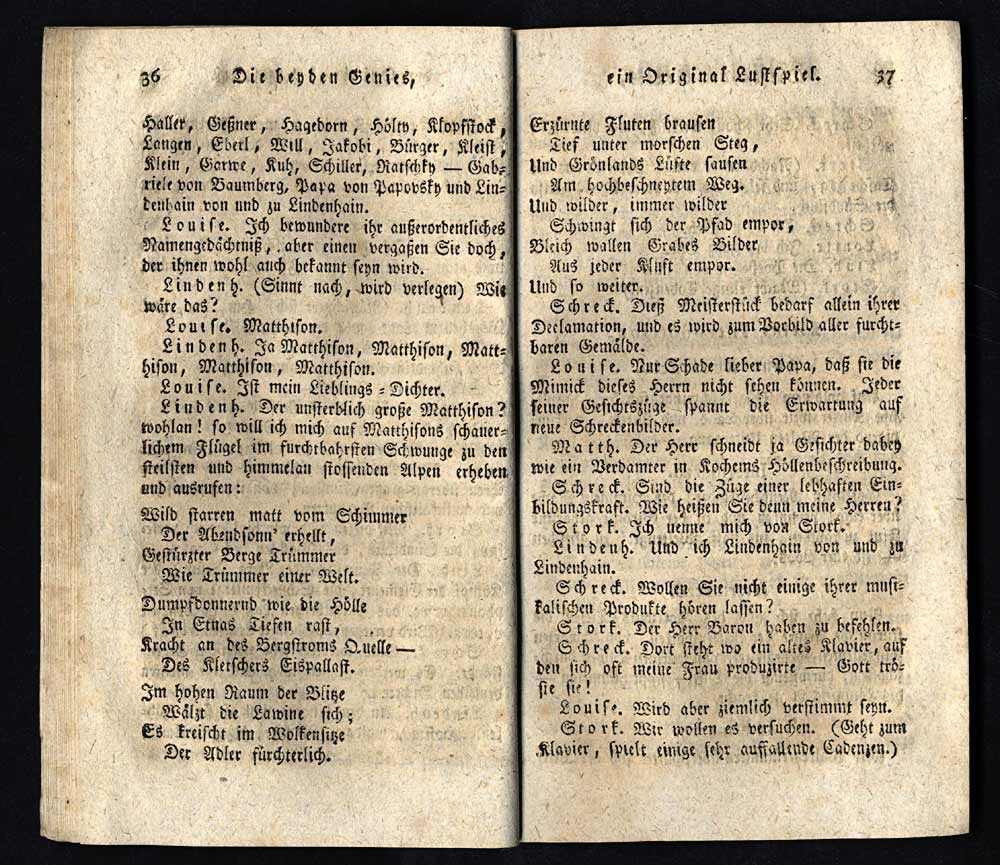 36 Die beyden Genies,
Haller, Geßner, Hagedorn, Hölty, Klopfstock,
Langen, Eberl, Will, Jakobi, Bürger, Kleist,
Klein, Garwe, Kuh, Schiller, Ratschky — Gab-
riele von Baumberg, Papa von Papovsky und Lin-
denhain von und zu Lindenhain.
Louise. Ich bewundere ihr außerordentliches
Namengedächtniß, aber einen vergaßen Sie doch,
der ihnen wohl auch bekannt seyn wird.
Lindenh. (Sinnt nach, wird verlegen) Wie
wäre das?
Louise. Matthison.
Lindenh. Ja Matthison, Matthison, Matt-
hison, Matthison, Matthison.
Louise. Ist mein Lieblings-Dichter.
Lindenh. Der unsterblich große Matthison?
wohlan! so will ich mich auf Matthisons schauer-
lichem Flügel im furchtbahrsten Schwunge zu den
steilsten und himmelan stossenden Alpen erheben
und ausrufen:
Wild starren matt vom Schimmer
Der Abendsonn' erhellt,
Gestürzter Berge Trümmer
Wie Trümmer einer Welt.
Dumpfdonnernd wie die Hölle
In Etnas Tiefen rast,
Kracht an des Bergstroms Quelle —
Des Kletschers Eispallast.
Im hohen Raum der Blitze
Wälzt die Lawine sich;
Es kreischt im Wolkensitze
Der Adler fürchterlich.
ein Original Lustspiel. 37
Erzürnte Fluten brausen
Tief unter morschen Steg,
Und Grönlands Lüfte sausen
Am hochbeschneytem Weg.
Und wilder, immer wilder
Schwingt sich der Pfad empor,
Bleich wallen Grabes Bilder
Aus jeder Kluft empor.
Und so weiter.
Schreck. Dieß Meisterstück bedarf allein ihrer
Declamation, und es wird zum Vorbild aller furcht-
baren Gemälde.
Louise. Nur Schade lieber Papa, daß sie die
Mimick dieses Herrn nicht sehen können. Jeder
seiner Gesichtszüge spannt die Erwartung auf
neue Schreckenbilder.
Matth. Der Herr schneidt ja Gesichter dabey
wie ein Verdamter in Kochems Höllenbeschreibung.
Schreck. Sind die Züge einer lebhaften Ein-
bildungskraft. Wie heißen Sie denn meine Herren?
Stork. Ich nenne mich von Stork.
Lindenh. Und ich Lindenhain von und zu
Lindenhain.
Schreck. Wollen Sie nicht einige ihrer musi-
kalischen Produkte hören lassen?
Stork. Der Herr Baron haben zu befehlen.
Schreck. Dort steht wo ein altes Klavier, auf
den sich oft meine Frau produzirte — Gott trö-
ste sie!
Louise. Wird aber ziemlich verstimmt seyn.
Stork. Wir wollen es versuchen. (Geht zum
Klavier, spielt einige sehr auffallende Cadenzen.)